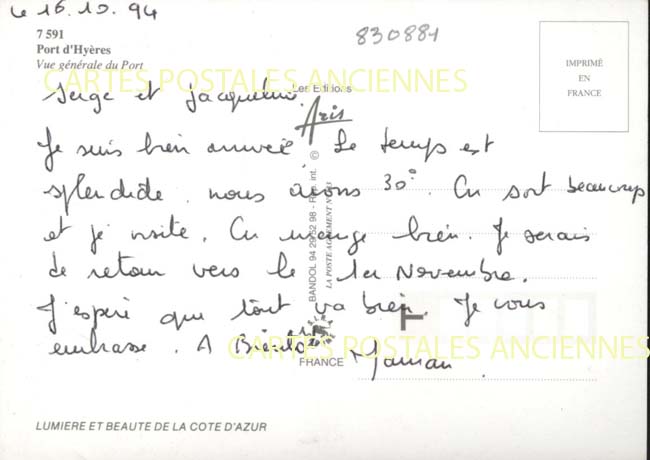 Le 16.10.94
830881
7 591
Port d'Hyères
Vue générale du Port
IMPRIMÉ
EN
FRANCE
CARTES POSTALES ANCIENNES
Les Editions
Aris
Serge et Jacqueline.
Je suis bien arrivée. Le temps est
splendide. nous avons 30°. On sort beaucoup
et je visite. On mange bien. Je serais
de retour vers le 1er Novembre.
J'espère que tout va bien. Je vous
embrasse. A Bientôt
Maman.
BANDOL 94 29 52 98 - Rep. int. ©
LA POSTE AGREMENT N°
CARTES POSTALES ANCIENNES
FRANCE
LUMIERE ET BEAUTE DE LA COTE D'AZUR